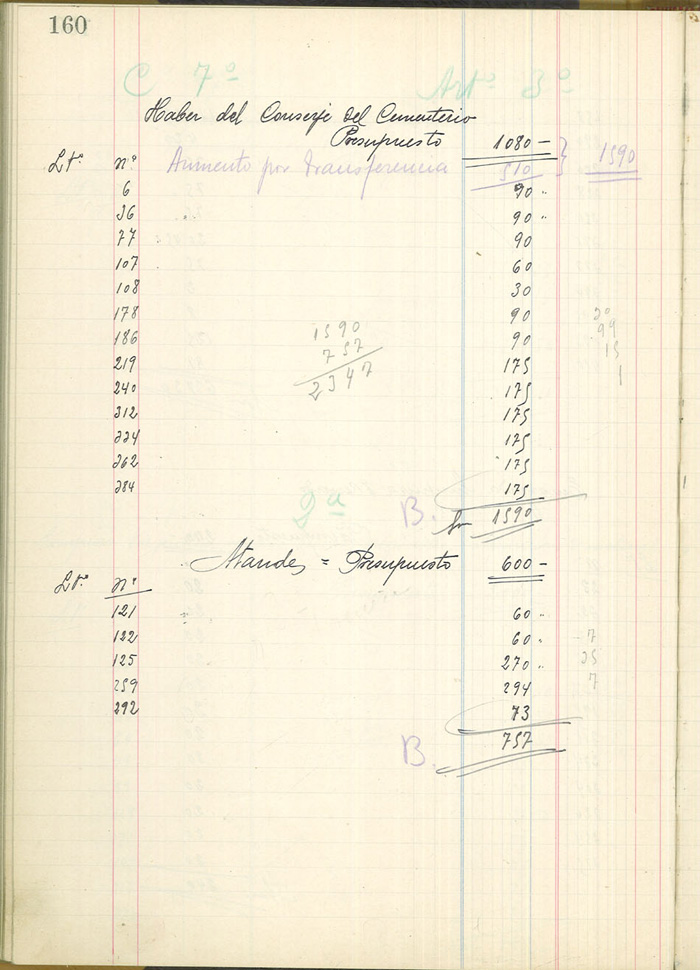 160
C 7º Artº 3º
Haber del Conserje del Cementerio
Presupuesto 1080 -
Lto. nº Aumento por transferencia 510 } 1590
6 90 "
36 90 "
77 90
107 60
108 30
178 90 20
186 1590 90 99
219 757 175 15
240 2347 175 1
312 175
334 175
362 175
384 175
2ª B. 1590
Ataudes = Presupuesto 600 -
Lto. nº
121 60 "
122 60 " 7
125 270 " 25
259 294 7
292 73
B. 757